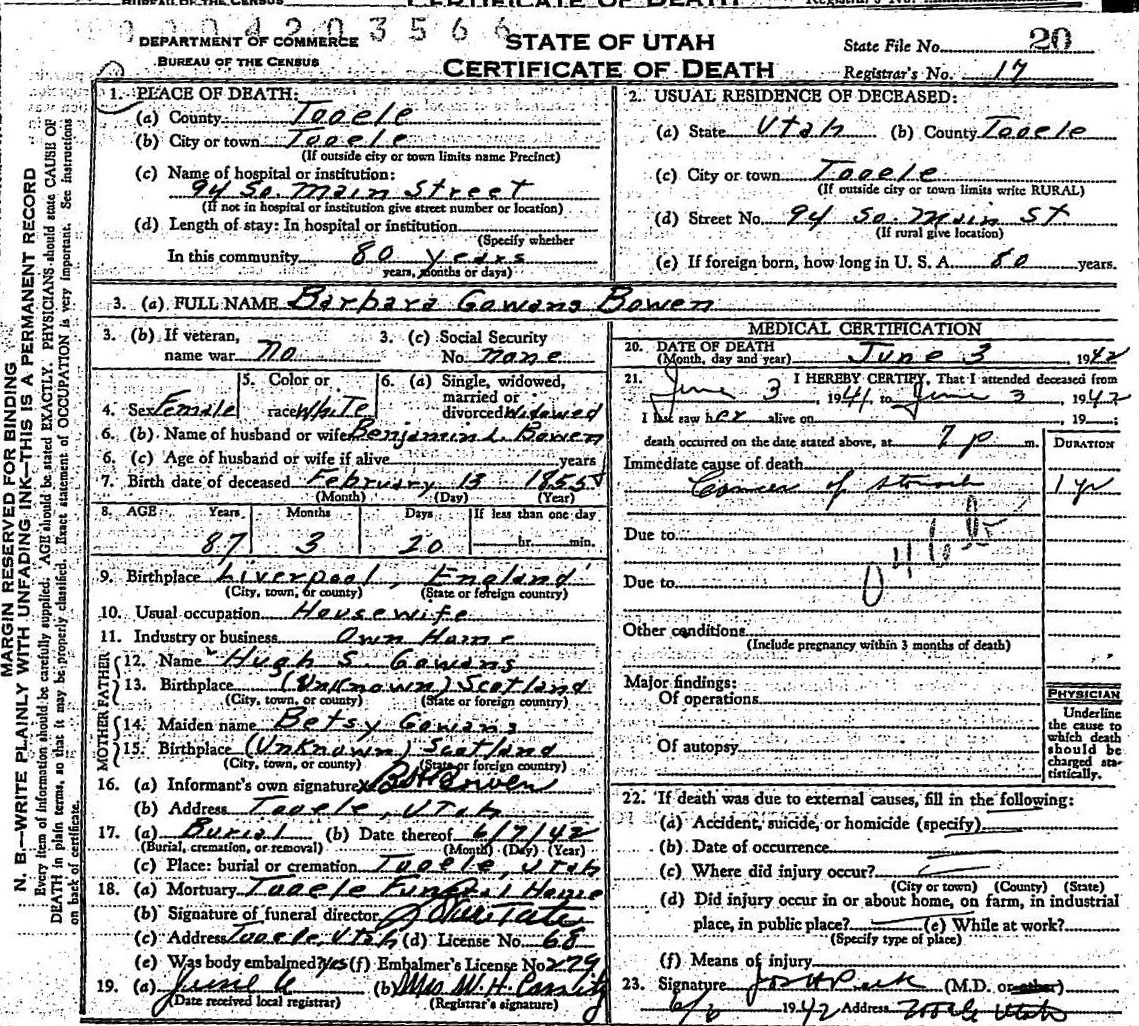 0 0 4 2 0 3 5 6 6
DEPARTMENT OF COMMERCE
BUREAU OF THE CENSUS
STATE OF UTAH
CERTIFICATE OF DEATH
State File No. 20
Registrar's No. 17
MARGIN RESERVED FOR BINDING
N. B.—WRITE PLAINLY WITH UNFADING INK—THIS IS A PERMANENT RECORD
Every item of information should be carefully supplied. AGE should be stated EXACTLY. PHYSICIANS should state CAUSE OF
DEATH in plain terms, so that it may be properly classified. Exact statement of OCCUPATION is very important. See instructions
on back of certificate.
1. PLACE OF DEATH:
(a) County Tooele
(b) City or town Tooele
(If outside city or town limits name Precinct)
(c) Name of hospital or institution:
94 So. Main Street
(If not in hospital or institution give street number or location)
(d) Length of stay: In hospital or institution
(Specify whether
In this community 80 years
years, months or days)
2. USUAL RESIDENCE OF DECEASED:
(a) State Utah (b) County Tooele
(c) City or town Tooele
(If outside city or town limits write RURAL)
(d) Street No. 94 So. Main St
(If rural give location)
(e) If foreign born, how long in U. S. A. 80 years.
3. (a) FULL NAME Barbara Gowans Bowen
3. (b) If veteran,
name war no
3. (c) Social Security
No. none
4. Sex Female
5. Color or
race White
6. (a) Single, widowed,
married or
divorced Widowed
6. (b) Name of husband or wife Benjamin L. Bowen
6. (c) Age of husband or wife if alive years
7. Birth date of deceased February 13 1855
(Month) (Day) (Year)
8. AGE Years Months Days If less than one day
87 3 20 hr. min.
9. Birthplace Liverpool, England
(City, town, or county) (State or foreign country)
10. Usual occupation Housewife
11. Industry or business Own Home
FATHER
12. Name Hugh S. Gowans
13. Birthplace (Unknown) Scotland
(City, town, or county) (State or foreign country)
MOTHER
14. Maiden name Betsy Gowans
15. Birthplace (Unknown) Scotland
(City, town, or county) (State or foreign country)
16. (a) Informant's own signature Bowen
(b) Address Tooele, Utah
17. (a) Burial (b) Date thereof 6/7/42
(Burial, cremation, or removal) (Month) (Day) (Year)
(c) Place: burial or cremation Tooele, Utah
18. (a) Mortuary Tooele Funeral Home
(b) Signature of funeral director Tate
(c) Address Tooele, Utah (d) License No. 68
(e) Was body embalmed? Yes (f) Embalmer's License No. 279
19. (a) June 6 (b) Mrs M. H.
(Date received local registrar) (Registrar's signature)
MEDICAL CERTIFICATION
20. DATE OF DEATH
(Month, day and year) June 3 1942
21. I HEREBY CERTIFY, That I attended deceased from
June 3, 1941, to June 3, 1942
I last saw her alive on , 19
death occurred on the date stated above, at 7 p m.
DURATION
Immediate cause of death
Cancer of stomach 1 yr
Due to
046b
Due to
Other conditions
(Include pregnancy within 3 months of death)
Major findings:
Of operations
Of autopsy
PHYSICIAN
Underline
the cause to
which death
should be
charged sta-
tistically.
22. If death was due to external causes, fill in the following:
(a) Accident, suicide, or homicide (specify)
(b) Date of occurrence
(c) Where did injury occur?
(City or town) (County) (State)
(d) Did injury occur in or about home, on farm, in industrial
place, in public place? (e) While at work?
(Specify type of place)
(f) Means of injury
23. Signature Jos H Peck (M.D. or other)
6/6 1942 Address Tooele Utah